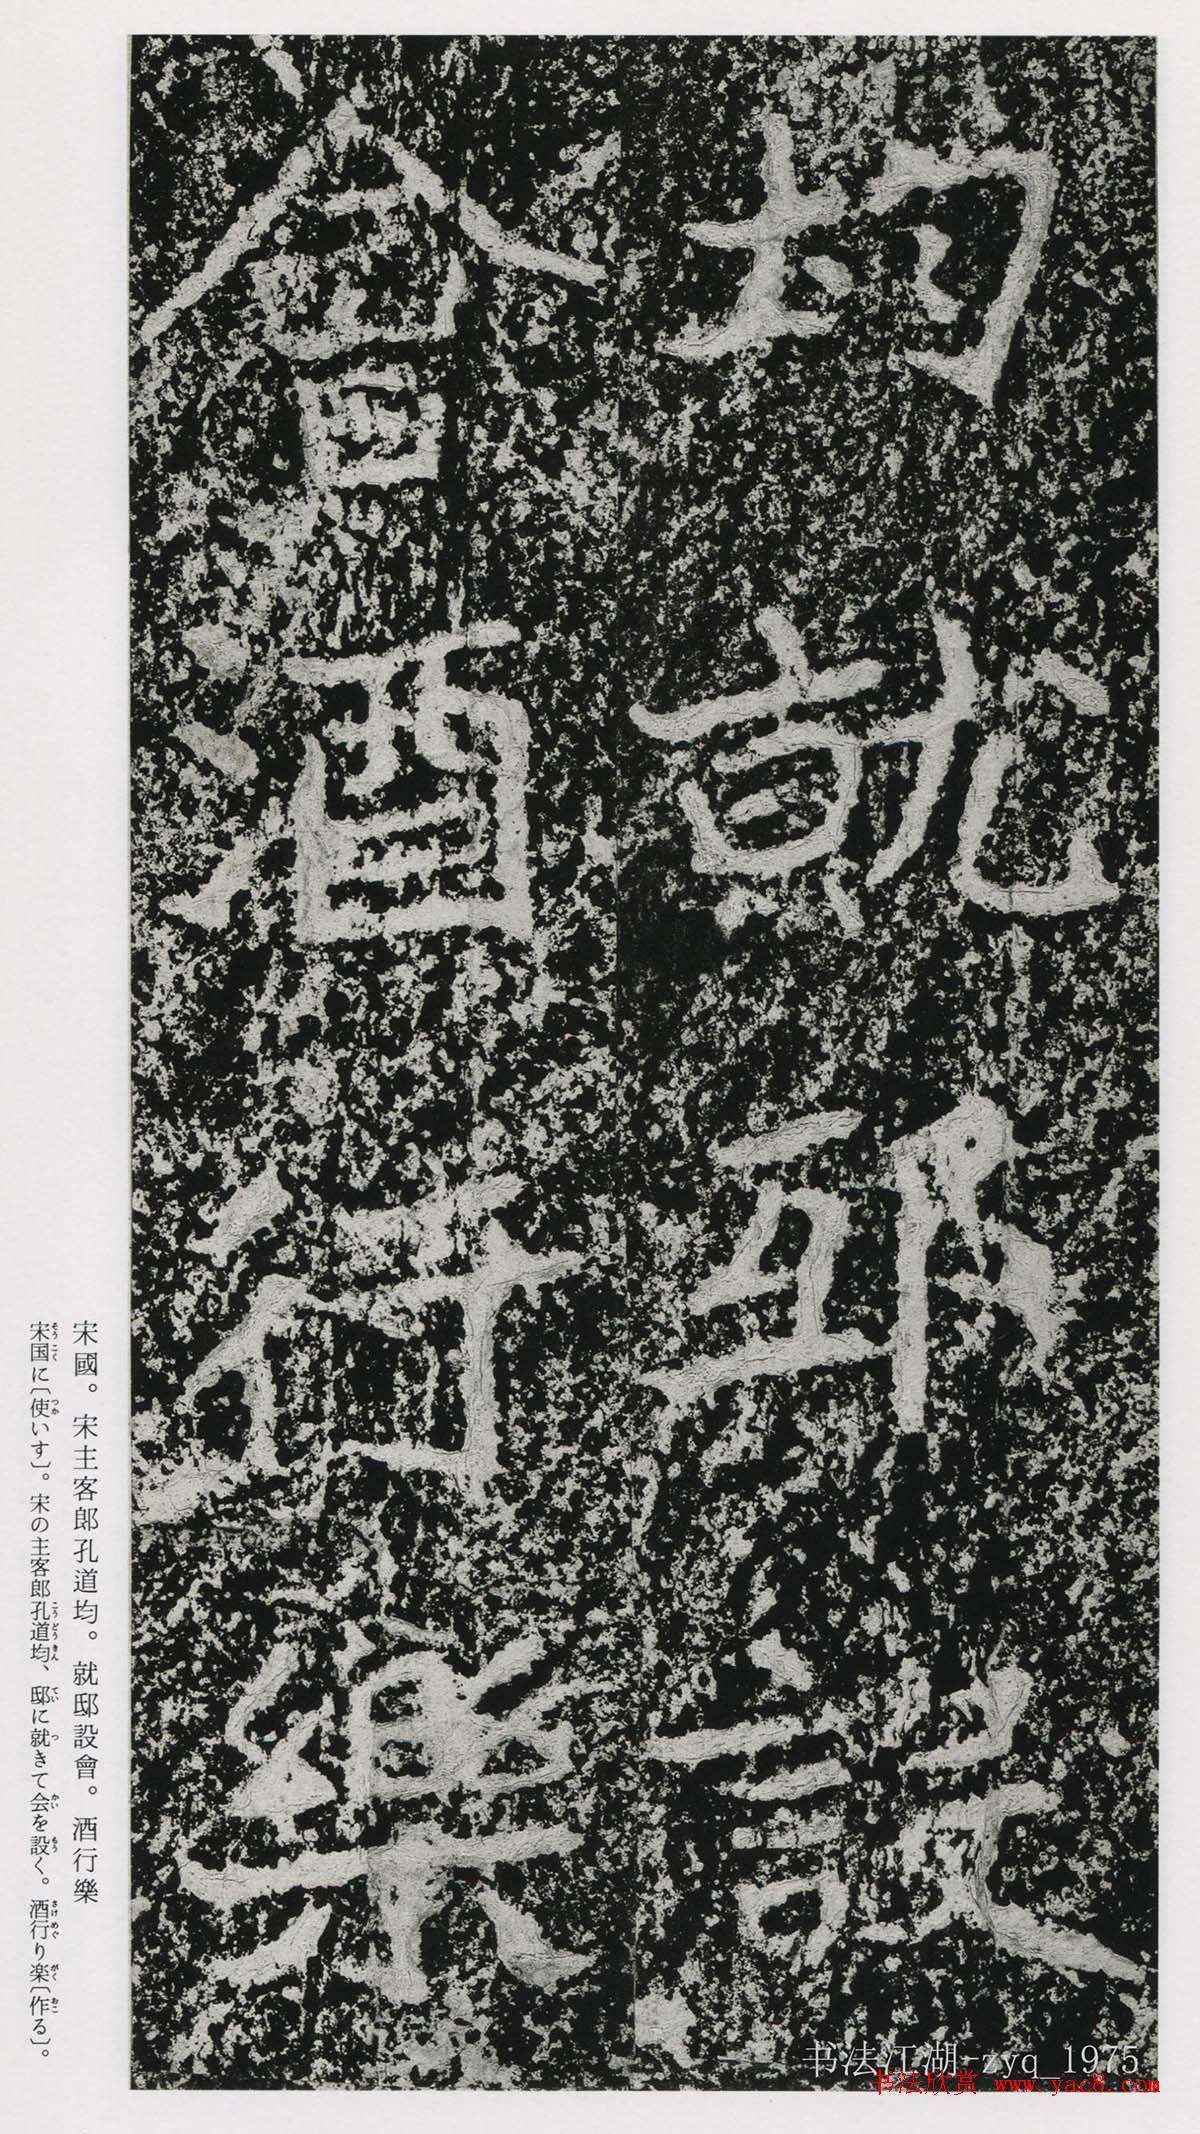 均就邸設
會酒行樂
宋國。宋主客郎孔道均。就邸設會。酒行樂
宋国に〔使いす〕。宋の主客郎孔道均、邸に就きて会を設く。酒行り楽〔作る〕。
书法江湖-zyq_1975
书法欣赏 www.yac8.com